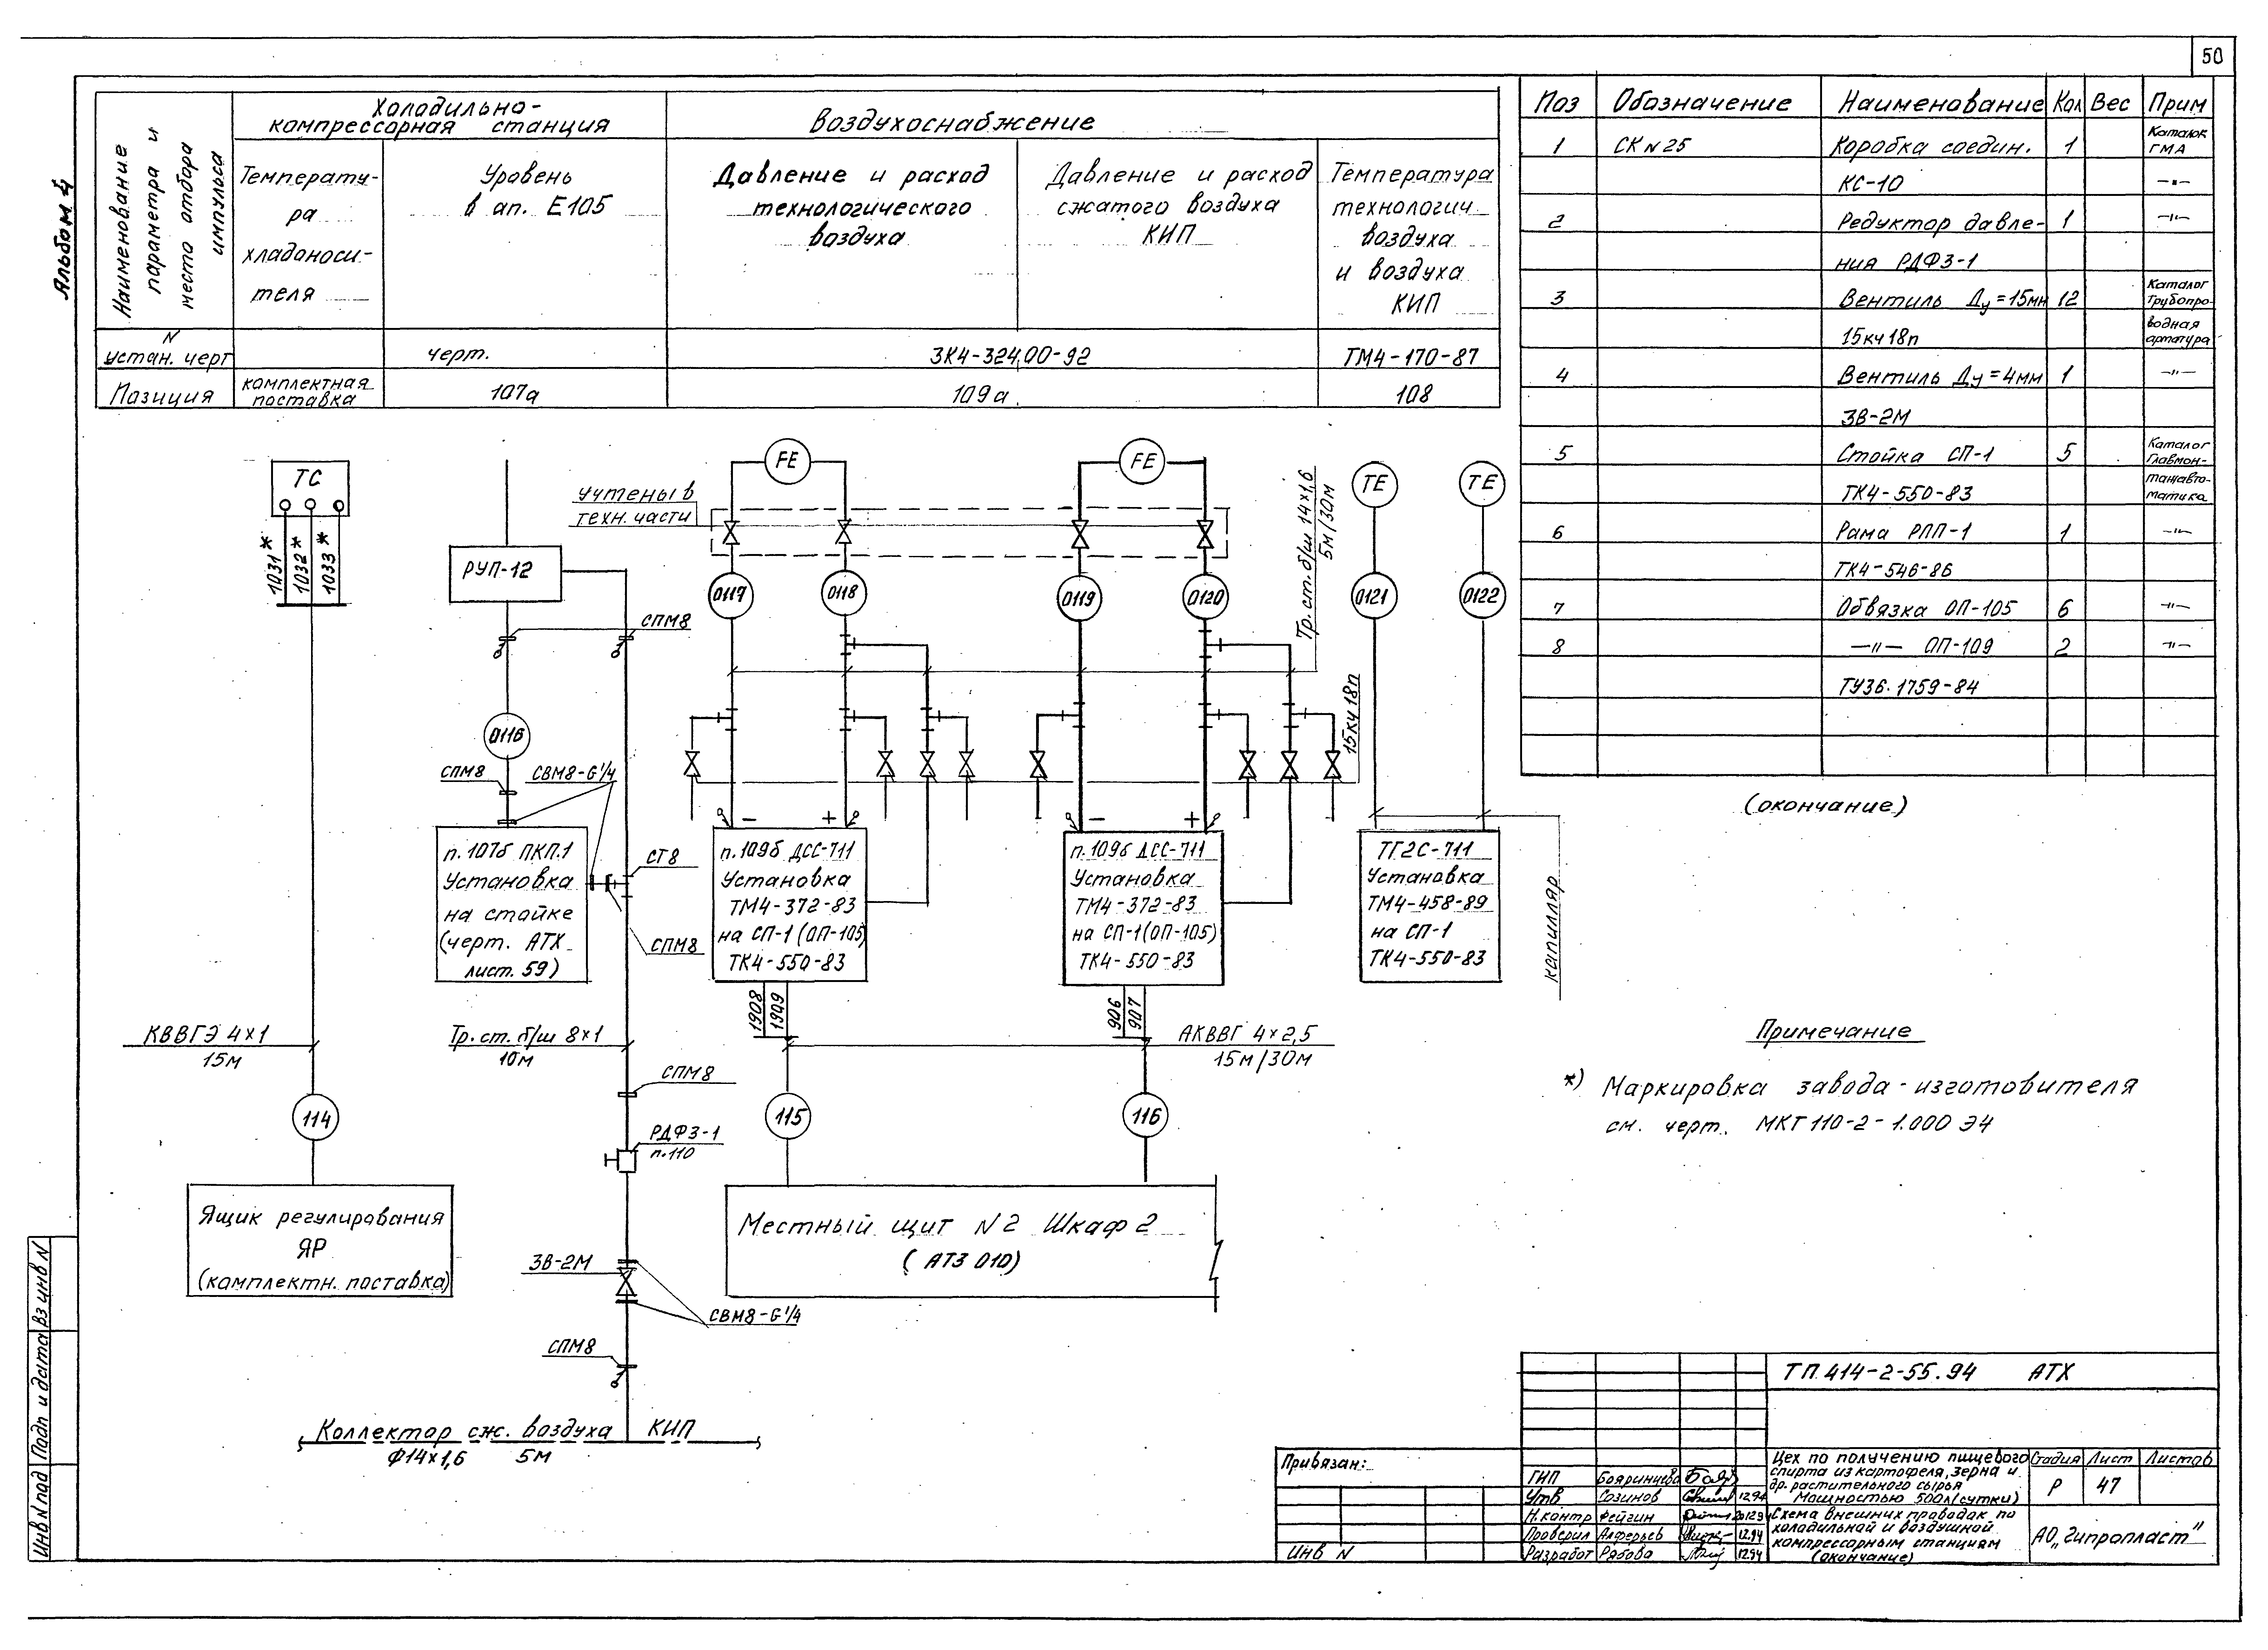 50
Альбом 4
Наименование
параметра и
места отбора
импульса
Холодильно-
компрессорная станция
Воздухоснабжение
Температу-
ра
хладоноси-
теля
Уровень
в ап. Е105
Давление и расход
технологического
воздуха
Давление и расход
сжатого воздуха
КИП
Температура
технологич
воздуха
и воздуха
КИП
N
устан. черт
черт.
3К4-324.00-92
ТМ4-170-87
Позиция
комплектная
поставка
107а
109а.
108
Поз Обозначение Наименование Кол Вес Прим
1 СК N 25 Коробка соедин. 1 Каталог ГМА
КС-10 —"—
2 Редуктор давле- 1 —"—
ния РДФ3-1
3 Вентиль Ду=15мм 12 Каталог Трубопро-
15кч18п водная арматура
4 Вентиль Ду=4мм 1 —"—
ЗВ-2М
5 Стойка СП-1 5 Каталог Главмон-
ТК4-550-83 тажавто-матика
6 Рама РПП-1 1 —"—
ТК4-546-86
7 Обвязка ОП-105 6 —"—
8 —"— ОП-109 2 —"—
ТУ36.1759-84
(окончание)
ТС
1031*
1032*
1033*
РУП-12
СПМ8
0116
СПМ8
СВМ8-G1/4
п.107б ПКП.1
Установка
на стойке
(черт. АТХ
лист. 59)
СТ8
СПМ8
учтены в
техн. части
FE
FE
TE
TE
0117
0118
0119
0120
0121
0122
Тр. ст. б/ш 14×1,6
5м/30м
15кч18п
– +
– +
п.109б ДСС-711
Установка
ТМ4-372-83
на СП-1 (ОП-105)
ТК4-550-83
п.109б ДСС-711
Установка
ТМ4-372-83
на СП-1 (ОП-105)
ТК4-550-83
ТГ2С-711
Установка
ТМ4-458-89
на СП-1
ТК4-550-83
капилляр
1908
1909
906
907
КВВГЭ 4×1
15м
Тр. ст. б/ш 8×1
10м
АКВВГ 4×2,5
15м/30м
СПМ8
114
115
116
РДФ3-1
п.110
Ящик регулирования
ЯР
(комплектн. поставка)
Местный щит N2 Шкаф 2
(АТЗ 010)
ЗВ-2М
СВМ8-G1/4
СПМ8
Коллектор сж. воздуха КИП
Ф14×1,6 5м
Примечание
*) Маркировка завода-изготовителя
см. черт. МКТ 110-2-1.000 Э4
ТП 414-2-55.94 АТХ
Привязан:
Инв N
ГИП Бояринцева
Утв Созинов 12.94
Н.контр Фейгин 20.12.94
Проверил Алферьев 12.94
Разработ Рябова 12.94
Цех по получению пищевого
спирта из картофеля, зерна и
др. растительного сырья
Мощностью 500л(сутки)
Стадия Лист Листов
Р 47
Схема внешних проводок по
холодильной и воздушной
компрессорным станциям
(окончание)
АО„Гипропласт"
Инв N под Подп и дата Вз инв N